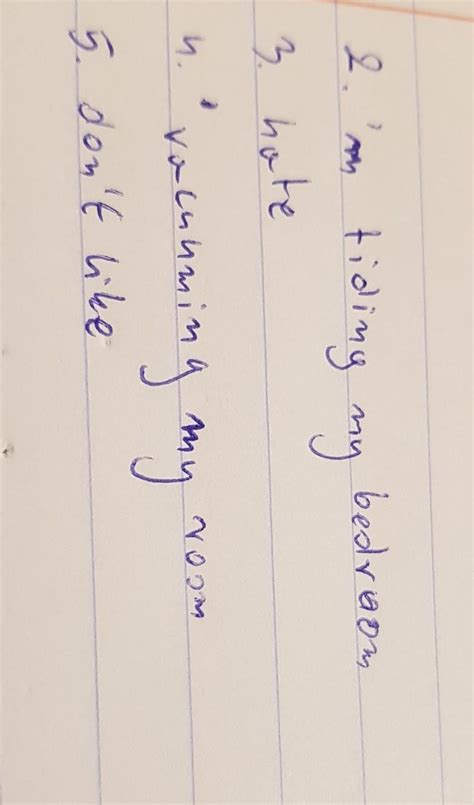 2. 'm tiding my bedroom
3. hate
4. ' vacuhming my room
5. don't like